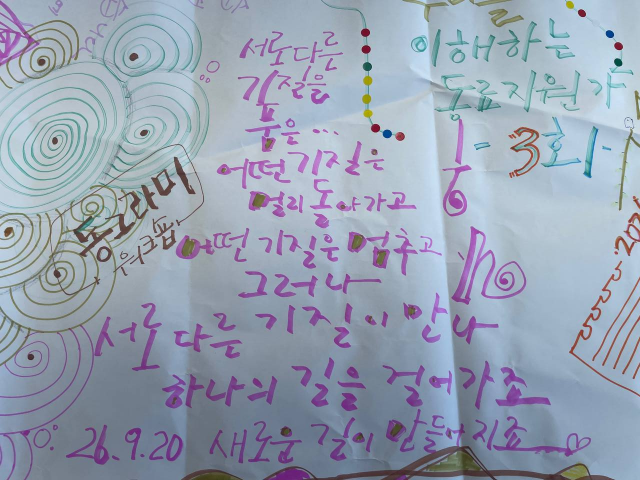 서로다른
기질을
품은...
어떤기질은
멀리 돌아가고
어떤 기질은 멈추고
그러나
서로 다른 기질이 만나
하나의 길을 걸어가죠
26.9.20 새로운 길이 만들어지죠
이해하는
동료지원가
3회
동그라미